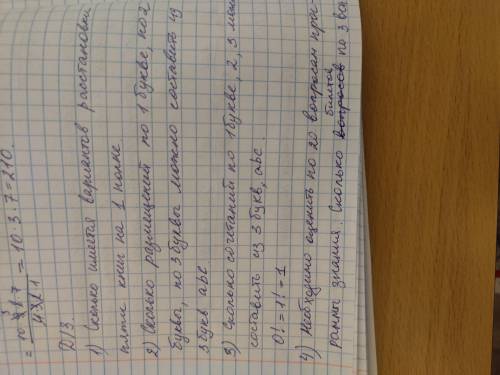 = 10 · 3 · 7 = 210.
Д/З.
1) Сколько имеется вариантов расстановки
пяти книг на 1 полке
2) Сколько размещений по 1 букве, по 2
буквы, по 3 буквы можно составить из
3 букв abc
3) Сколько сочетаний по 1 букве, 2, 3
составить из 3 букв, abc.
0! = 1! = 1
4) Необходимо оценить по 20 вопросам
знания. Сколько билетов
вопросов по 3